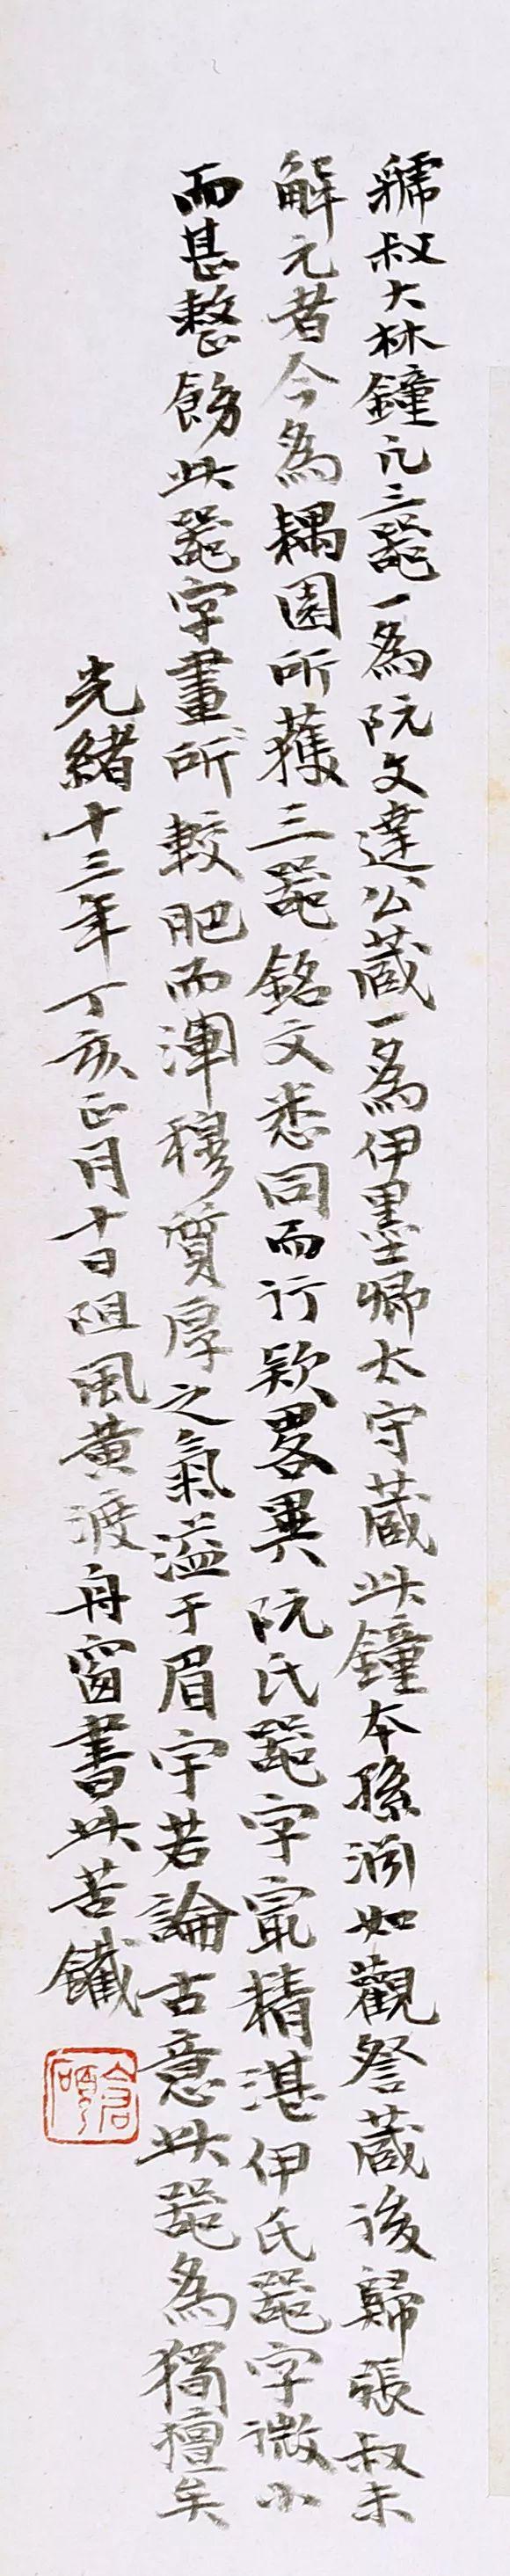 虢叔大林鐘凢三器一為阮文達公蔵一為伊墨卿太守蔵此鐘本孫淵如觀詧蔵後歸張叔未
解元者今為耦園所獲三器銘文悉同而行款畧異阮氏器字寅精湛伊氏器字微小
而甚整飭此器字畫所較肥而渾穆質厚之氣溢于眉宇若論古意此器為獨擅矣
光緒十三年丁亥正月十日阻風黄渡舟窗書此苦鐵
倉碩